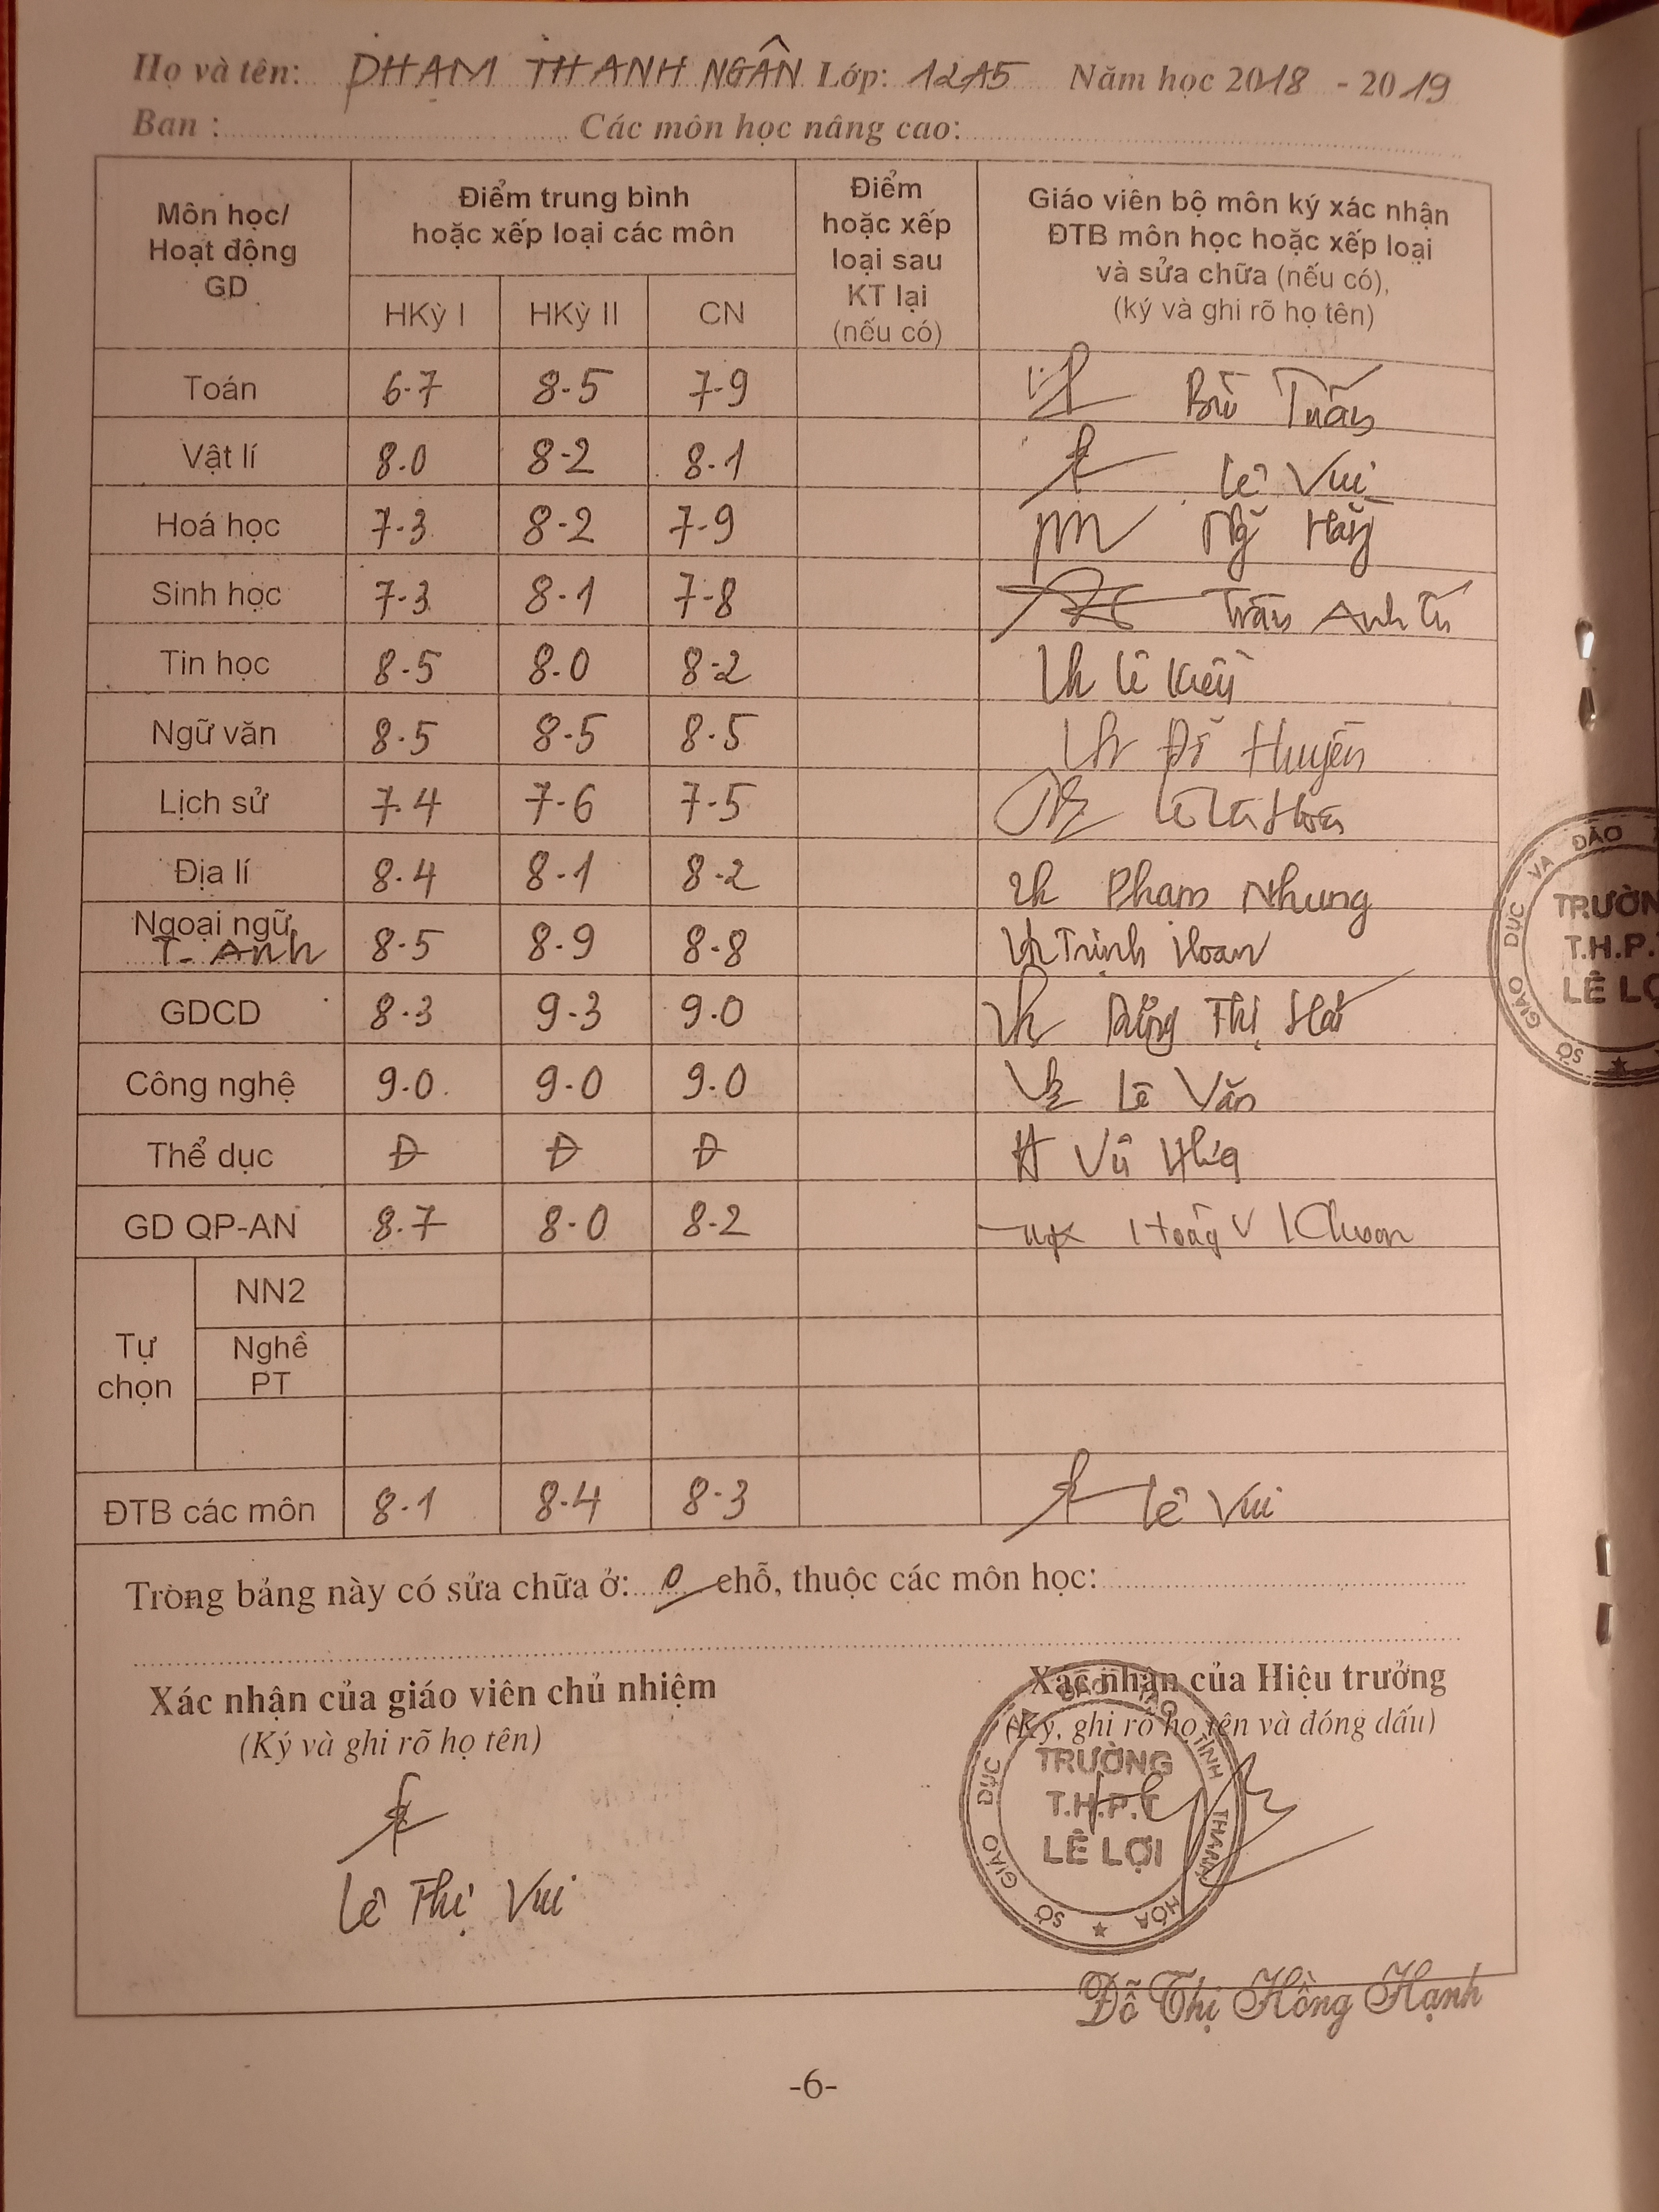 Họ và tên: PHẠM THANH NGÂN Lớp: 12A5 Năm học 2018 - 2019
Ban : Các môn học nâng cao:
Môn học/
Hoạt động
GD
Điểm trung bình
hoặc xếp loại các môn
Điểm
hoặc xếp
loại sau
KT lại
(nếu có)
Giáo viên bộ môn ký xác nhận
ĐTB môn học hoặc xếp loại
và sửa chữa (nếu có),
(ký và ghi rõ họ tên)
HKỳ I HKỳ II CN
Toán 6.7 8.5 7.9
Vật lí 8.0 8.2 8.1 Lê Vui
Hoá học 7.3 8.2 7.9
Sinh học 7.3 8.1 7.8 Trần Anh Tú
Tin học 8.5 8.0 8.2 Lê
Ngữ văn 8.5 8.5 8.5 Đỗ Huyền
Lịch sử 7.4 7.6 7.5
Địa lí 8.4 8.1 8.2 Phạm Nhung
Ngoại ngữ
T. Anh 8.5 8.9 8.8 Trịnh Hoan
GDCD 8.3 9.3 9.0 Thị
Công nghệ 9.0 9.0 9.0 Lê Văn
Thể dục Đ Đ Đ Vũ
GD QP-AN 8.7 8.0 8.2
Tự
chọn
NN2
Nghề
PT
ĐTB các môn 8.1 8.4 8.3 Lê Vui
Trong bảng này có sửa chữa ở: 0 chỗ, thuộc các môn học:
Xác nhận của giáo viên chủ nhiệm
(Ký và ghi rõ họ tên)
Lê Thị Vui
Xác nhận của Hiệu trưởng
(Ký, ghi rõ họ tên và đóng dấu)
SỞ GIÁO DỤC VÀ ĐÀO TẠO TỈNH THANH HÓA
TRƯỜNG
T.H.P.T
LÊ LỢI
Đỗ Thị Hồng Hạnh
-6-
SỞ GIÁO DỤC VÀ ĐÀO
TRƯỜN
T.H.P.
LÊ LỢ